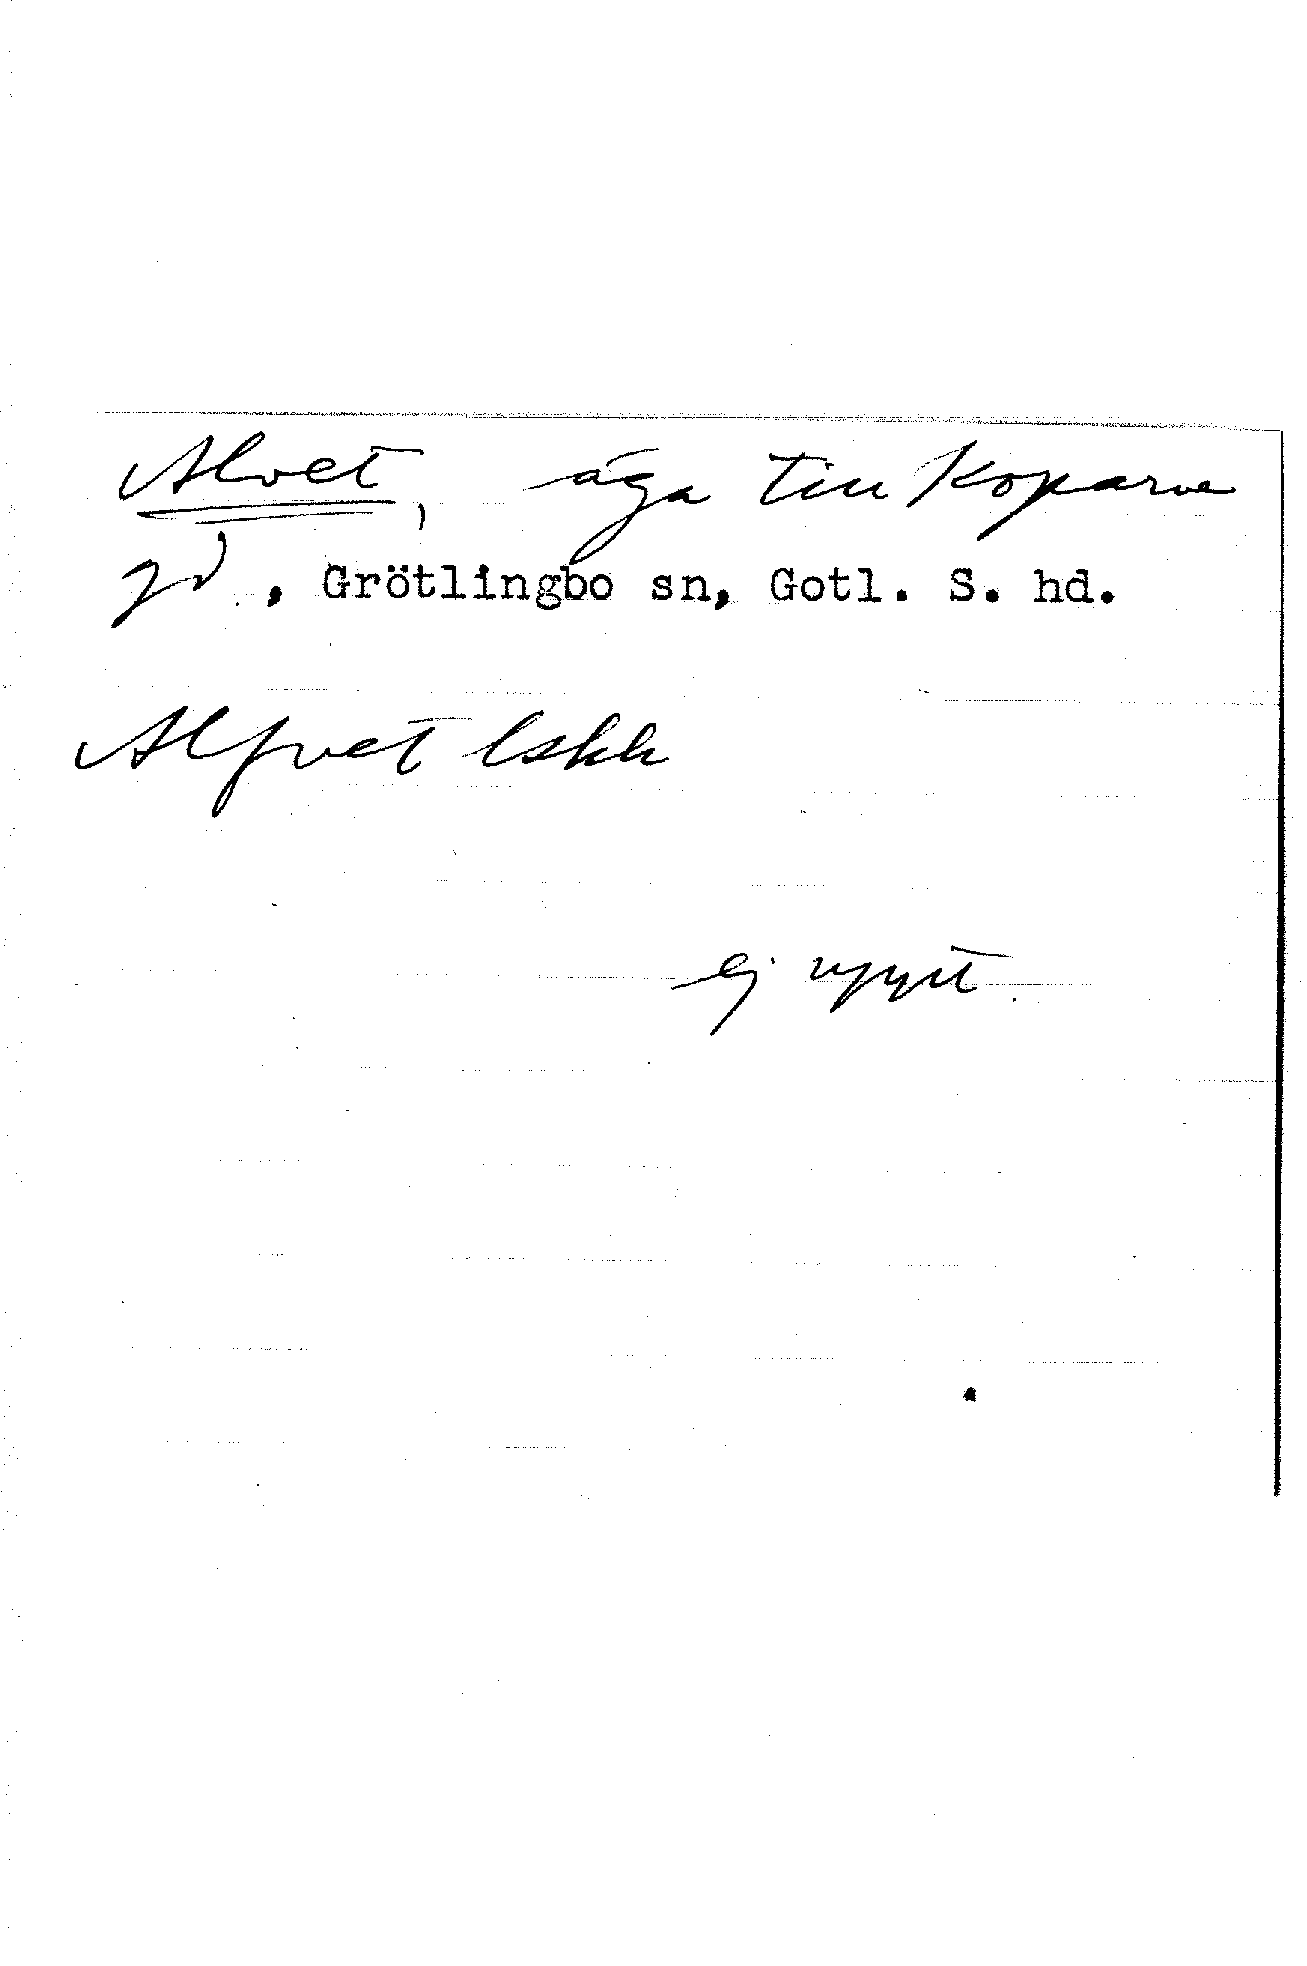 Alvet, äga till Koparve
gd, Grötlingbo sn, Gotl. S. hd.
Alfvet lskk
ej uppt.